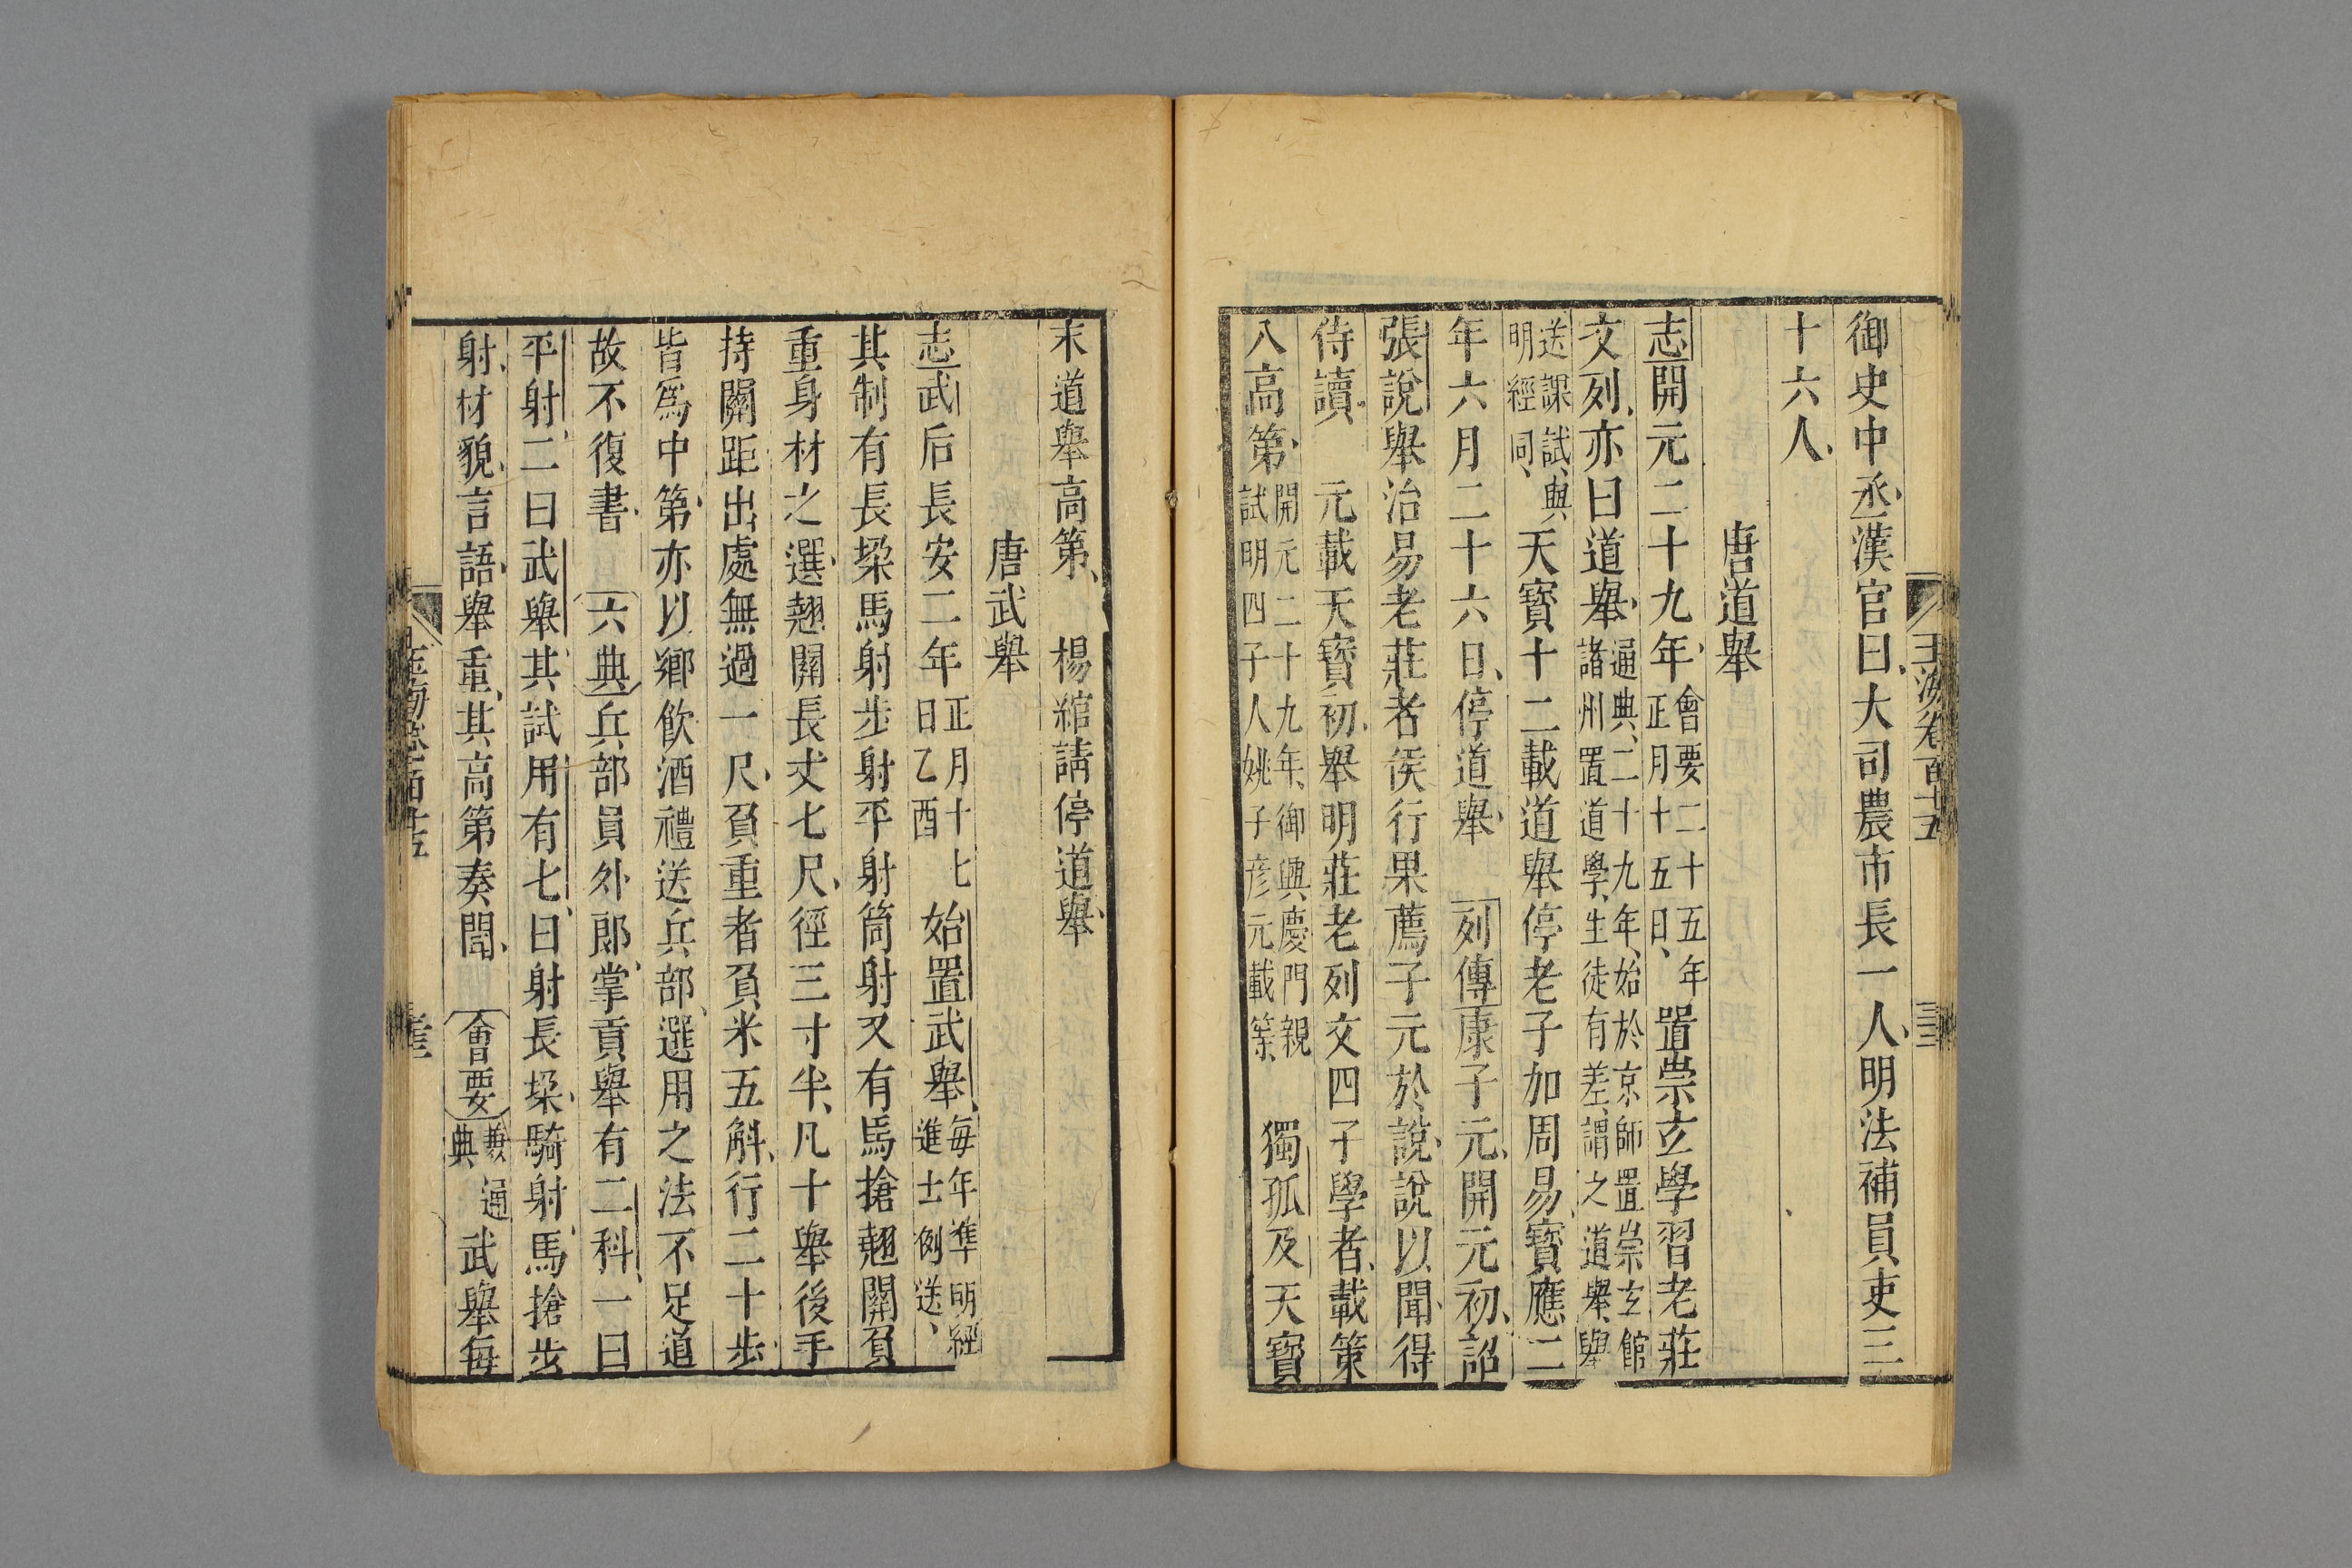 玉海卷百十五
御史中丞漢官曰大司農市長一人明法補員吏三
十六人
唐道舉
志開元二十九年會要二十五年正月十五日置崇玄學習老莊
文列亦曰道舉通典二十九年始於京師置崇玄館諸州置道學生徒有差謂之道舉舉
送課試與明經同天寶十二載道舉停老子加周易寶應二
年六月二十六日停道舉 列傳康子元開元初詔
張說舉治易老莊者侯行果薦子元於說說以聞得
侍讀 元載天寶初舉明莊老列文四子學者載策
入高第開元二十九年御興慶門親試明四子人姚子彥元載等 獨孤及天寶
末道舉高第 楊綰請停道舉
唐武舉
志武后長安二年正月十七日乙酉始置武舉每年準明經進士例送
其制有長垛馬射步射平射筒射又有馬搶翹關負
重身材之選翹關長丈七尺徑三寸半凡十舉後手
持關距出處無過一尺負重者負米五斛行二十步
皆為中第亦以鄉飲酒禮送兵部選用之法不足道
故不復書 六典兵部員外郎掌貢舉有二科一曰
平射二曰武舉其試用有七曰射長垛騎射馬搶步
射材貌言語舉重其高第奏聞 會要兼通典武舉每
玉海卷百十五